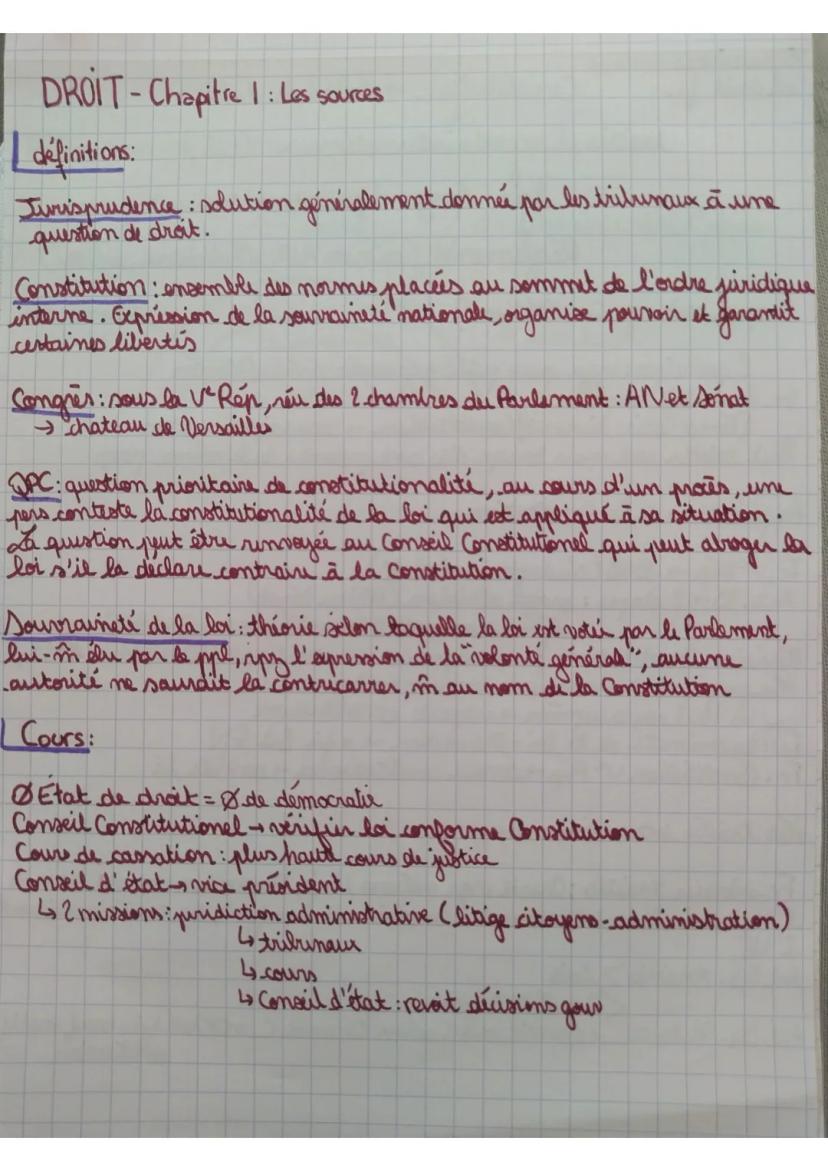 DROIT - Chapitre 1 : Les sources
définitions:
Jurisprudence : solution généralement donnée par les tribunaux à une
question de droit.
Constitution : ensemble des normes placées au sommet de l'ordre juridique
interne. Expression de la souvraineté nationale, organise pouvoir et garantit
certaines libertés
Congrès : sous la Ve Rép, réu des 2 chambres du Parlement : AN et Sénat
→ chateau de Versailles
QPC : question prioritaire de constitutionalité, au cours d'un procès, une
pers conteste la constitutionalité de la loi qui est appliqué à sa situation.
La question peut être renvoyée au Conseil Constitutionel qui peut abroger la
loi s'il la déclare contraire à la Constitution.
Souvraineté de la loi : théorie selon laquelle la loi est votée par le Parlement,
lui-m̂ élu par le ppl, rpz l'expression de la "volonté générale", aucune
autorité ne saurait la contrecarrer, m̂ au nom de la Constitution
Cours:
Ø État de droit = Ø de démocratie
Conseil Constitutionel → vérifier loi conforme Constitution
Cours de cassation : plus haute cours de justice
Conseil d'état → vice président
↳ 2 missions : juridiction administrative (litige citoyens-administration)
↳ tribunaux
↳ cours
↳ Conseil d'état : revoit décisions gouv